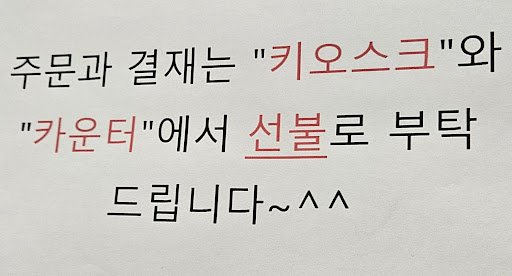 주문과 결재는 "키오스크"와
"카운터"에서 선불로 부탁
드립니다~^^